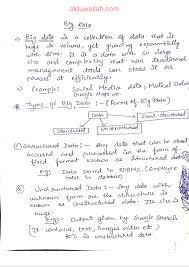 aktuwallah.com
Big Data
Big data is a collection of data that is
huge in volume, yet growing exponentially
with time. It is a data with so large
size and complexity that non traditional
management tools can store it or
process it efficiently.
Social Media data, Medical Data,
Google Maps etc.
Types of Big Data :- (Forms of Big Data)
Data
Structured
Unstructured
Semi-structured
Structured Data :- Any data that can be stored
accessed and processed in the form of
fixed format known as structured data
Eg:- Data stored in RDBMS (Employee
table in database)
Unstructured Data :- Any data with
unknown form or the structure is
known as unstructured data. Its size is
huge.
Eg:- Output given by Google Search
It contains, text, images, video etc)
80% is unstructured data